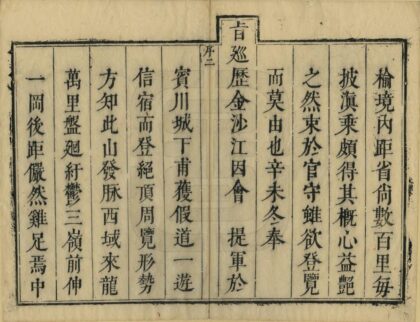 榆境內距省尚數百里每
披滇乗頗得其概心益艷
之然束於官守雖欲登覽
而莫由也辛未冬奉
旨廵歷金沙江因會　提軍於
序二
賓川城下甫獲假道一遊
信宿而登絕頂周覽形勢
方知此山發脉西域來龍
萬里盤廻紆鬱三嶺前伸
一岡後距儼然雞足焉中